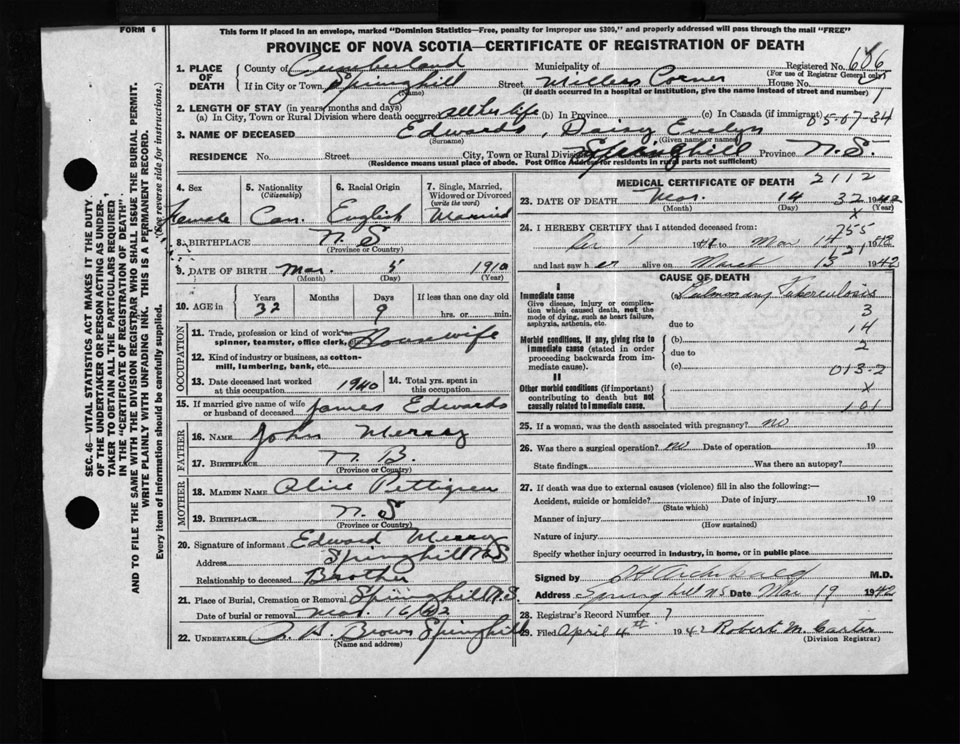 This form if placed in an envelope, marked "Dominion Statistics—Free, penalty for improper use $300," and properly addressed will pass through the mail "FREE"
FORM 6
PROVINCE OF NOVA SCOTIA—CERTIFICATE OF REGISTRATION OF DEATH
Registered No. 686
(For use of Registrar General only)
1. PLACE OF DEATH
County of Cumberland Municipality of
If in City or Town Springhill Street Millers Corner House No.
(Name) (If death occurred in a hospital or institution, give the name instead of street and number)
2. LENGTH OF STAY (in years, months and days)
(a) In City, Town or Rural Division where death occurred all her life (b) In Province (c) In Canada (if immigrant)
05-07-34
3. NAME OF DECEASED Edwards, Daisy Evelyn
(Surname) (Given name or names)
RESIDENCE No. Street City, Town or Rural Division Springhill Province N.S.
(Residence means usual place of abode. Post Office Address for residents in rural parts not sufficient)
4. Sex Female
5. Nationality (Citizenship) Can.
6. Racial Origin English
7. Single, Married, Widowed or Divorced (write the word) Married
8. BIRTHPLACE N. S
(Province or Country)
9. DATE OF BIRTH Mar. 5 1910
(Month) (Day) (Year)
10. AGE in Years Months Days If less than one day old
32 9 hrs. or min.
OCCUPATION
11. Trade, profession or kind of work as spinner, teamster, office clerk, etc. Housewife
12. Kind of industry or business, as cotton-mill, lumbering, bank, etc.
13. Date deceased last worked at this occupation 1940
14. Total yrs. spent in this occupation
15. If married give name of wife or husband of deceased James Edwards
FATHER
16. NAME John Merray
17. BIRTHPLACE N. B.
(Province or Country)
MOTHER
18. MAIDEN NAME Olive Pettigren
19. BIRTHPLACE N. S
(Province or Country)
20. Signature of informant Edward Merray
Address Springhill N S
Relationship to deceased Brother
21. Place of Burial, Cremation or Removal Springhill N.S.
Date of burial or removal Mar. 16/42
22. UNDERTAKER Brown Springhill
(Name and address)
MEDICAL CERTIFICATE OF DEATH 2112
23. DATE OF DEATH Mar. 14 1942
(Month) (Day) (Year)
32
X
24. I HEREBY CERTIFY that I attended deceased from:
755
194 to Mar 14 1942
and last saw her alive on March 13 1942
CAUSE OF DEATH
I
Immediate cause
Give disease, injury or complication which caused death, not the mode of dying, such as heart failure, asphyxia, asthenia, etc.
(a) Pulmonary Tuberculosis
3
due to
14
Morbid conditions, if any, giving rise to immediate cause (stated in order proceeding backwards from immediate cause).
(b)
2
due to
(c)
013-2
II
Other morbid conditions (if important) contributing to death but not causally related to immediate cause.
X
101
25. If a woman, was the death associated with pregnancy? no
26. Was there a surgical operation? no Date of operation 19
State findings Was there an autopsy?
27. If death was due to external causes (violence) fill in also the following:—
Accident, suicide or homicide? Date of injury 19
(State which)
Manner of injury
(How sustained)
Nature of injury
Specify whether injury occurred in industry, in home, or in public place
Signed by Archibald M.D.
Address Springhill NS Date Mar 19 1942
28. Registrar's Record Number 7
29. Filed April 4th 1942 Robert M. Carter
(Division Registrar)
SEC. 46—VITAL STATISTICS ACT MAKES IT THE DUTY
OF THE UNDERTAKER OR PERSON ACTING AS UNDER-
TAKER TO OBTAIN ALL THE PARTICULARS REQUIRED
IN THE "CERTIFICATE OF REGISTRATION OF DEATH"
AND TO FILE THE SAME WITH THE DIVISION REGISTRAR WHO SHALL ISSUE THE BURIAL PERMIT.
WRITE PLAINLY WITH UNFADING INK. THIS IS A PERMANENT RECORD.
Every item of information should be carefully supplied. (See reverse side for instructions.)